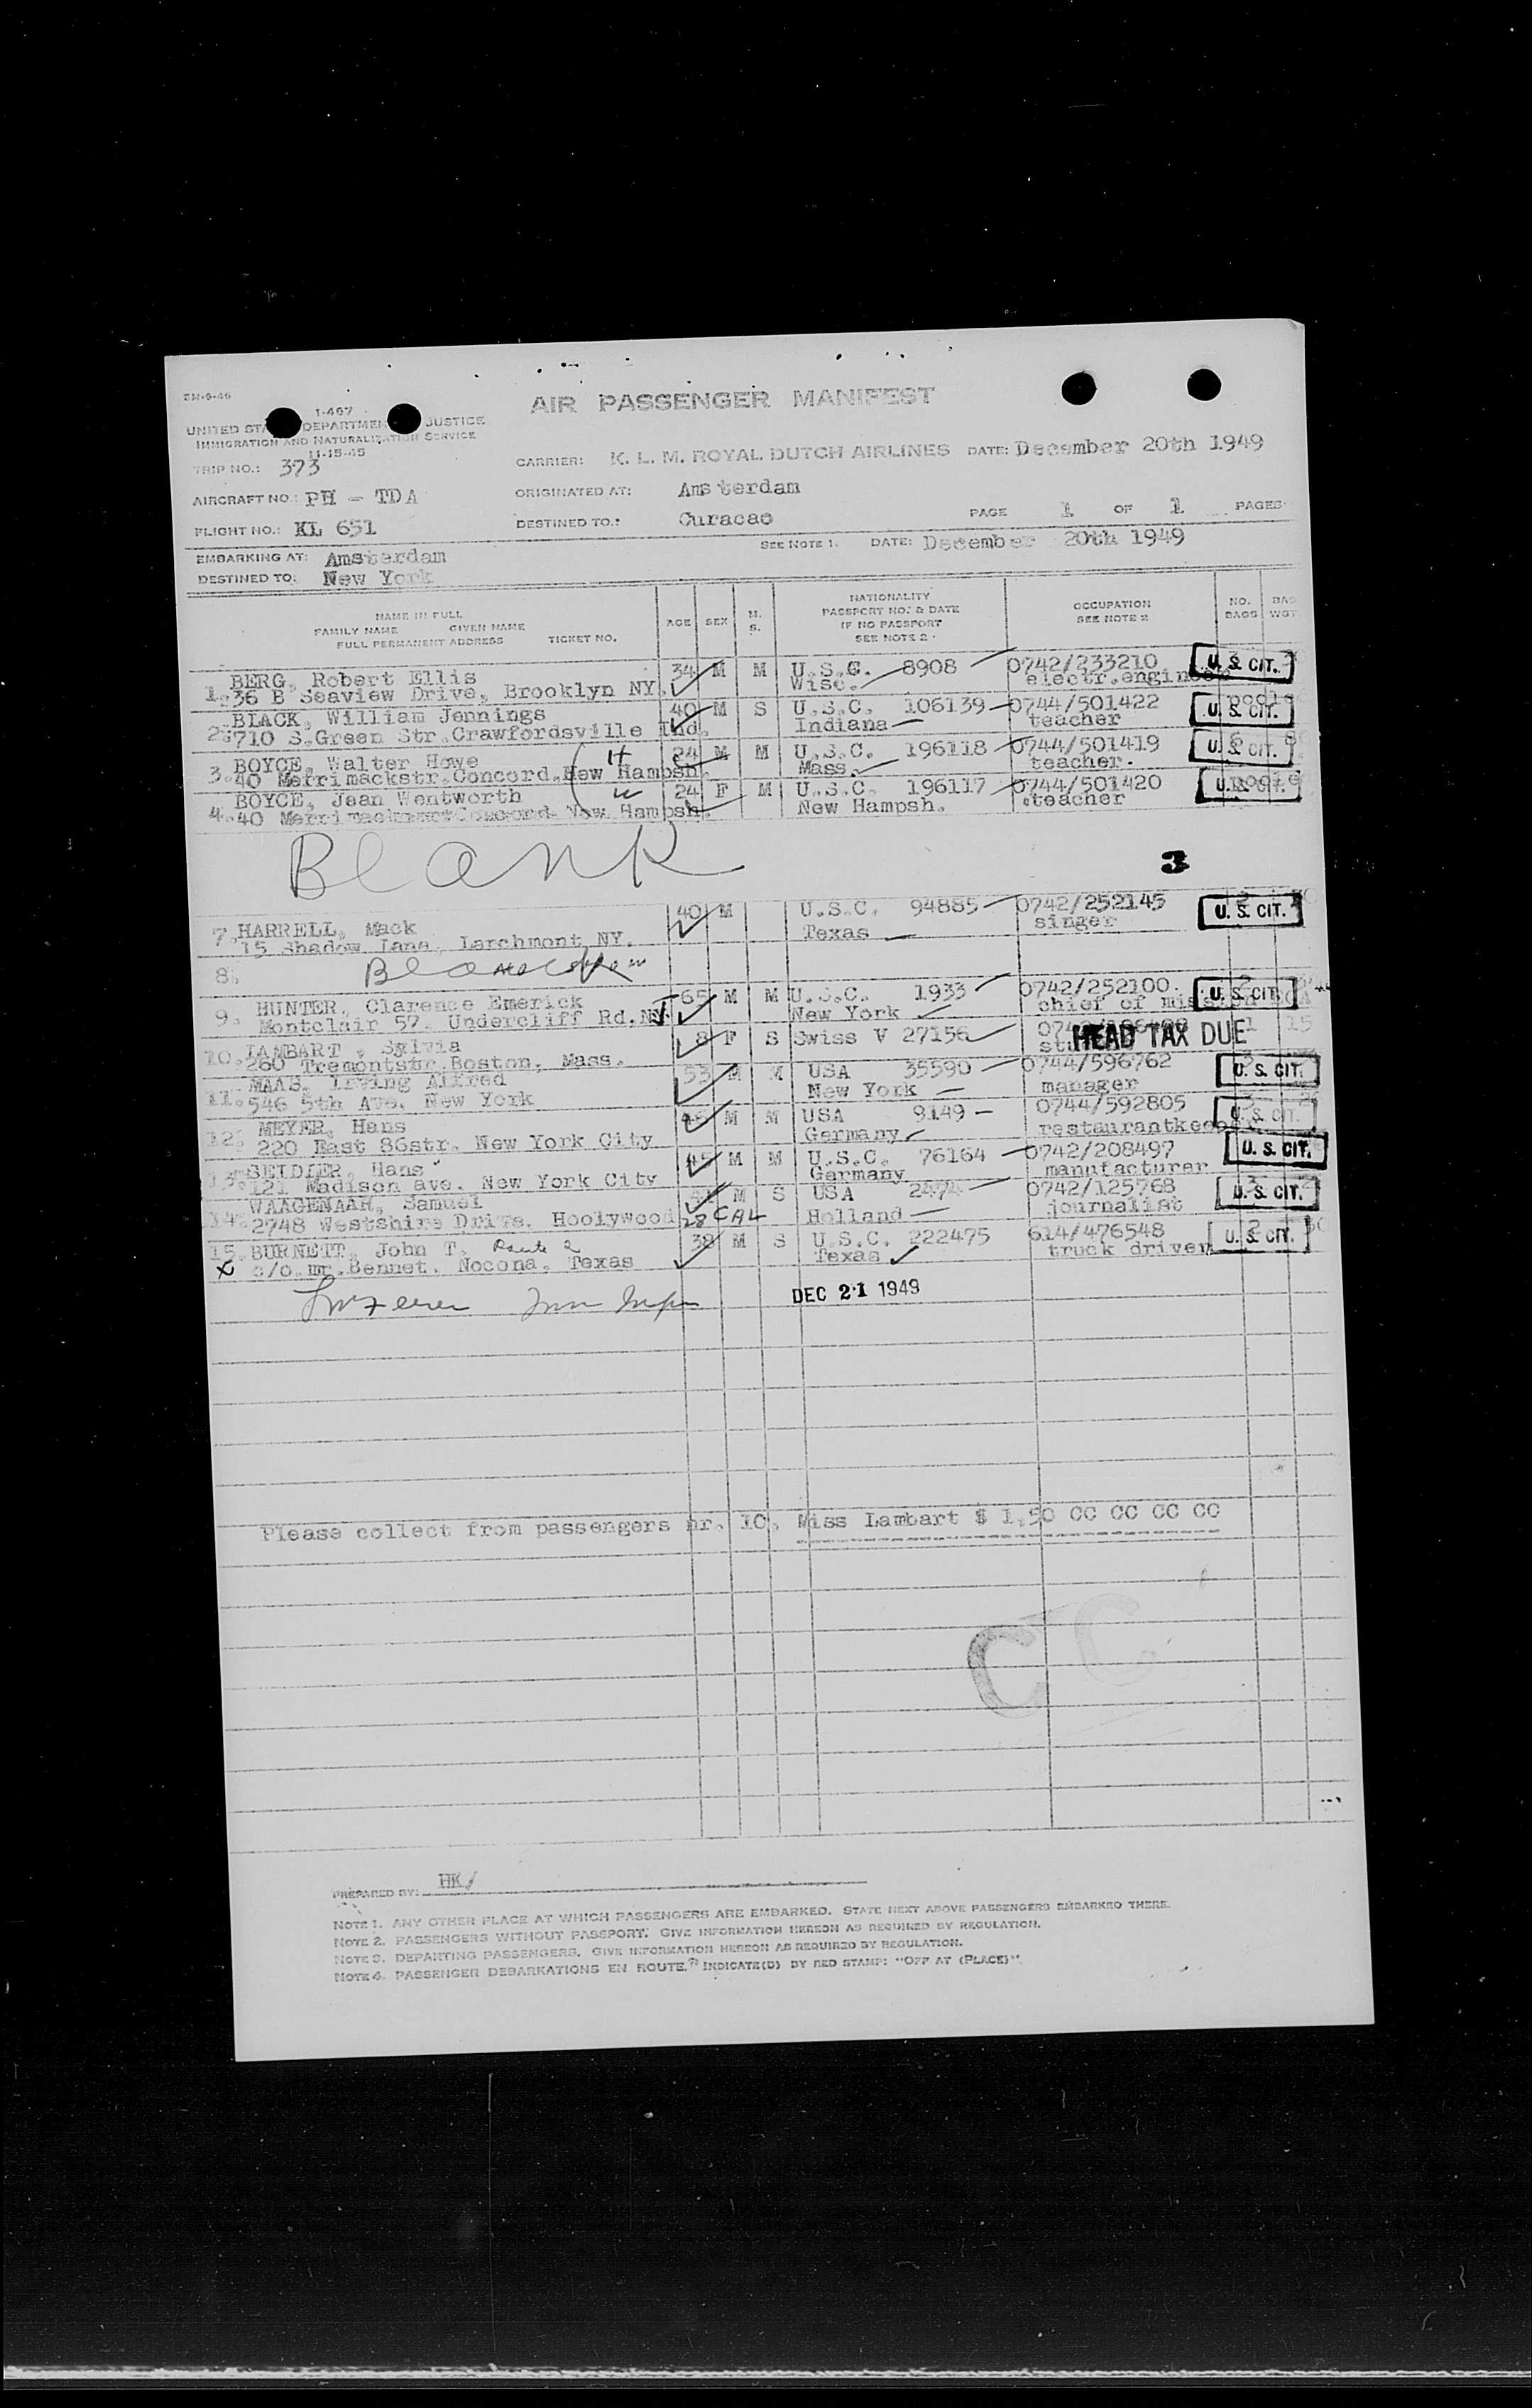 EM-6-46
I-467
AIR PASSENGER MANIFEST
UNITED STA DEPARTMEN JUSTICE
IMMIGRATION AND NATURALIZATION SERVICE
11-15-45
TRIP NO.: 373
CARRIER: K. L. M. ROYAL DUTCH AIRLINES DATE: December 20th 1949
AIRCRAFT NO.: PH - TDA
ORIGINATED AT: Amsterdam
FLIGHT NO.: KL 651
DESTINED TO.: Curacao
PAGE 1 OF 1 PAGES
SEE NOTE 1. DATE: December 20th 1949
EMBARKING AT: Amsterdam
DESTINED TO: New York
NAME IN FULL
FAMILY NAME GIVEN NAME
FULL PERMANENT ADDRESS TICKET NO.
AGE SEX M. S.
NATIONALITY
PASSPORT NO. & DATE
IF NO PASSPORT
SEE NOTE 2.
OCCUPATION
SEE NOTE 2
NO. BAGS
BAG WGT
BERG, Robert Ellis 34 M M U.S.C. 8908 0742/233210 U. S. CIT.
1. 36 B Seaview Drive, Brooklyn NY. Wisc. electr.engineer
BLACK, William Jennings 40 M S U.S.C. 106139 0744/501422 U. S. CIT.
2. 710 S.Green Str.Crawfordsville Ind. Indiana teacher
BOYCE, Walter Howe H 24 M M U.S.C. 196118 0744/501419 U. S. CIT.
3. 40 Merrimackstr.Concord.New Hampsh. Mass. teacher.
BOYCE, Jean Wentworth W 24 F M U.S.C. 196117 0744/501420 U. S. CIT.
4. 40 Concord New Hampsh. New Hampsh. teacher
Blank
3
HARRELL, Mack 40 M U.S.C. 94885 0742/252145 U. S. CIT.
7. 15 Shadow Lane, Larchmont NY. Texas singer
8.
HUNTER, Clarence Emerick 65 M M U.S.C. 1933 0742/252100. U. S. CIT.
9. Montclair 57. Undercliff Rd.NJ New York chief of mission
LAMBART, Sylvia 8 F S Swiss V 27156 HEAD TAX DUE 1 15
10. 260 Tremontstr.Boston, Mass.
MAAS, Irving Alfred 53 M M USA 35590 0744/596762 U. S. CIT.
11. 546 5th Ave. New York New York manager
MEYER, Hans M M USA 9149 0744/592805 U. S. CIT.
12. 220 East 86str. New York City Germany restaurantkeeper
SEIDLER, Hans 45 M M U.S.C. 76164 0742/208497 U. S. CIT.
13. 121 Madison ave. New York City Germany manufacturer
WAAGENAAR, Samuel M S USA 2474 0742/125768 U. S. CIT.
14. 2748 Westshire Drive. Hoolywood 28 CAL Holland journalist
15. BURNETT, John T. Route 2 38 M S U.S.C. 222475 614/476548 U. S. CIT.
X c/o. mr.Bennet. Nocona, Texas Texas truck driver
DEC 21 1949
Please collect from passengers nr. 10. Miss Lambart $ 1,50 CC CC CC CC
CC
PREPARED BY: HK/
NOTE 1. ANY OTHER PLACE AT WHICH PASSENGERS ARE EMBARKED. STATE NEXT ABOVE PASSENGERS EMBARKED THERE.
NOTE 2. PASSENGERS WITHOUT PASSPORT. GIVE INFORMATION HEREON AS REQUIRED BY REGULATION.
NOTE 3. DEPARTING PASSENGERS. GIVE INFORMATION HEREON AS REQUIRED BY REGULATION.
NOTE 4. PASSENGER DEBARKATIONS EN ROUTE. INDICATE(D) BY RED STAMP: "OFF AT (PLACE)".